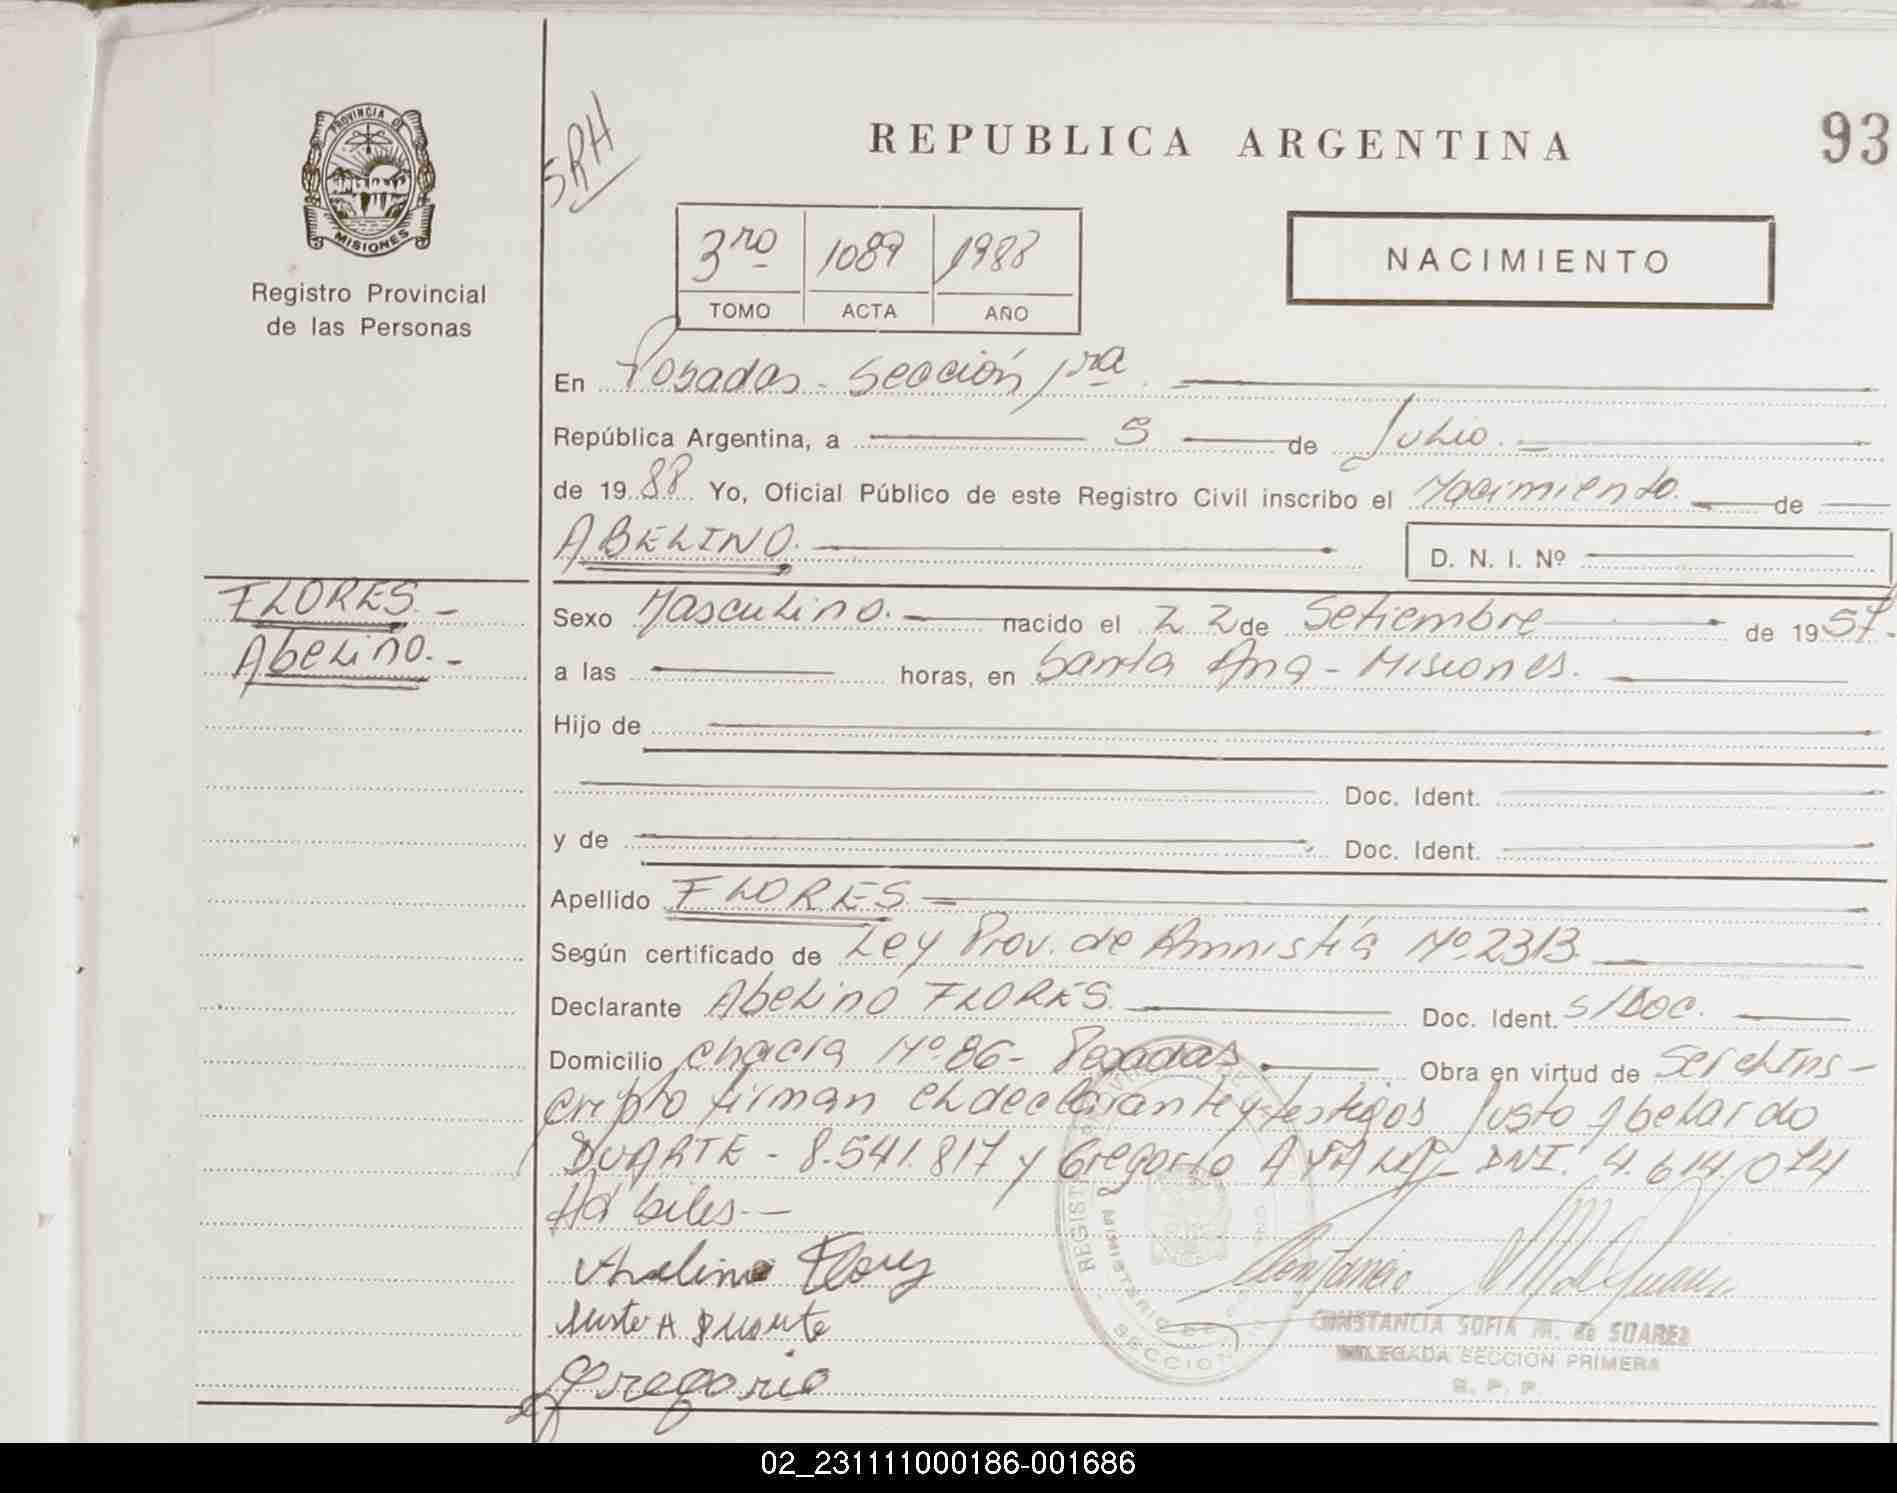 PROVINCIA DE
MISIONES
Registro Provincial
de las Personas
SRH
REPUBLICA ARGENTINA
93
3ro 1089 1988
TOMO ACTA AÑO
NACIMIENTO
En Posadas - Sección 1ra
República Argentina, a 5 de Julio.
de 1988 Yo, Oficial Público de este Registro Civil inscribo el Nacimiento de
ABELINO.
D. N. I. Nº
FLORES. -
Abelino. -
Sexo Masculino. nacido el 22 de Setiembre de 1957.
a las horas, en Santa Ana - Misiones.
Hijo de
Doc. Ident.
y de Doc. Ident.
Apellido FLORES
Según certificado de Ley Prov. de Amnistía Nº 2313
Declarante Abelino FLORES. Doc. Ident. S/DOC.
Domicilio chacra Nº 86 - Posadas Obra en virtud de ser el Ins-
cripto firman el declarante y testigos Justo Abelardo
DUARTE - 8.541.817 y Gregorio DNI. 4.614.074
Hábiles. -
Avelino Flores
Justo A Duarte
Gregorio
CONSTANCIA SOFIA M. de SUAREZ
DELEGADA SECCION PRIMERA
R. P. P.
02_231111000186-001686